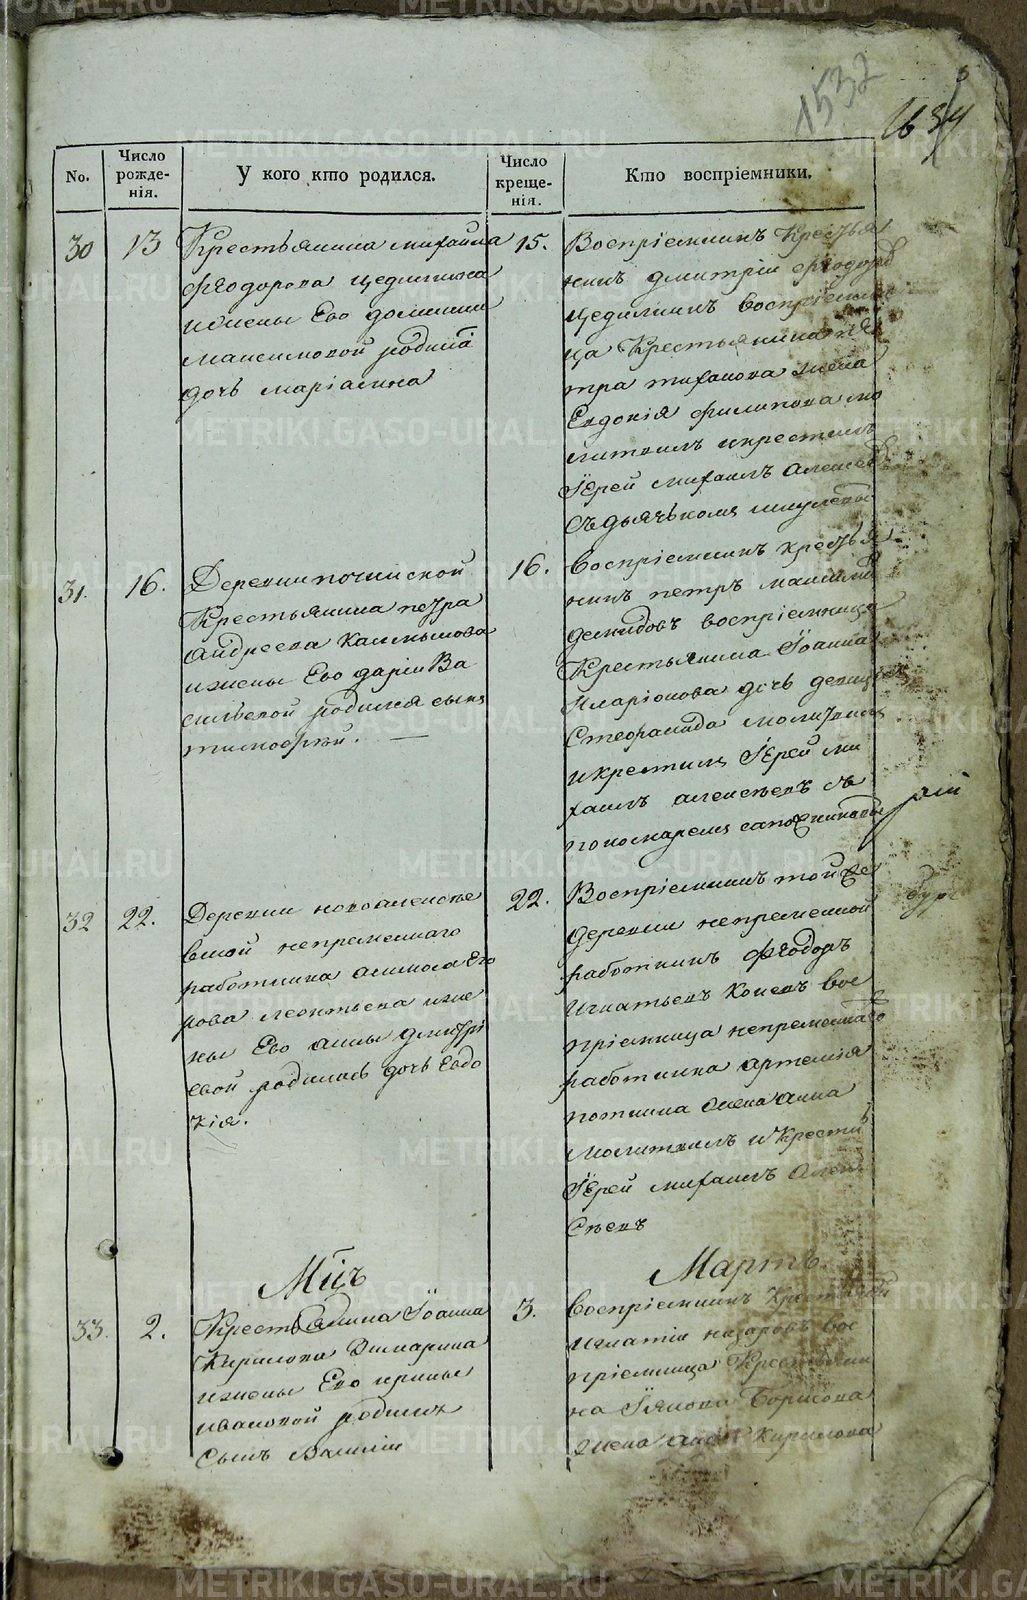 1532
1634
No.
Число рожде-нія.
У кого кто родился.
Число креще-нія.
Кто воспріемники.
30
13
Крестьянина михаила
Ѳеодорова цедилкина
ижены Его домники
максимовой родила
дочь маріамна
15.
Воспріемникъ Крестья
нинъ дмитрій Ѳеодоровъ
цедилкинъ воспріемни
ца Крестьянина пе
тра жена
Евдокія филипова мо
литвилъ икрестилъ
Іерей михаилъ алексеевъ
съдьячькомъ
31.
16.
Деревни
Крестьянина петра
андреева
ижены Его даріи Ва
сильевой родился сынъ
тимоѳей.
16.
воспріемникъ крестья
нинъ петръ максимовъ
демидовъ воспріемница
Крестьянина Іоанна
иларіонова дочь девица
Стефанида молитвилъ
икрестилъ Іерей ми
хаилъ алексѣевъ съ
пономаремъ сапожниковым
32
22.
Деревни новоалексѣе
вской непременнаго
работника
рова леонтьева иже
ны Его анны дмитрі
евой родилась дочь Евдо
кія.
22.
Воспріемникъ тойже
деревни непременной
работникъ Ѳеодоръ
игнатьевъ Коневъ вос
пріемница непременнаго
работника артемія
жена анна
молитвилъ и Крестилъ
Іерей михаилъ Алек
сѣевъ
Мцъ
Мартъ
33.
2.
Крестьянина Іоанна
Кирилова
ижены Его ирины
ивановой родился
сынъ Василій
3.
воспріемникъ Крестьянинъ
игнатій назаровъ вос
пріемница Крестьяни
на Іякова Борисова
жена Кирилова
METRIKI.GASO-URAL.RU